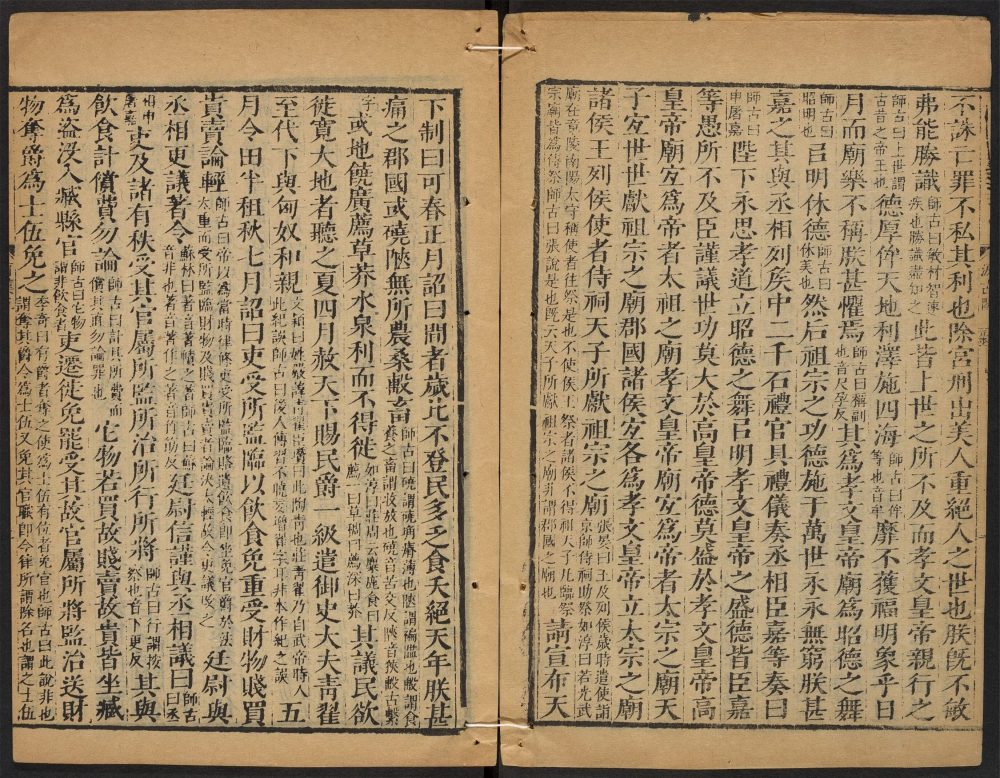 不誅亡罪不私其利也除宮刑出美人重絕人之世也朕旣不敏
弗能勝識師古曰敏材智速疾也勝識盡知之此皆上世之所不及而孝文皇帝親行之
師古曰上世謂古昔之帝王也德厚侔天地利澤施四海師古曰侔等也音牟靡不獲福明象乎日
月而廟樂不稱朕甚懼焉師古曰稱副也音尺孕反其爲孝文皇帝廟爲昭德之舞
師古曰昭明也㠯明休德師古曰休美也然后祖宗之功德施于萬世永永無窮朕甚
嘉之其與丞相列侯中二千石禮官具禮儀奏丞相臣嘉等奏曰
申屠嘉陛下永思孝道立昭德之舞㠯明孝文皇帝之盛德皆臣嘉
等愚所不及臣謹議世功莫大於高皇帝德莫盛於孝文皇帝高
皇帝廟宜爲帝者太祖之廟孝文皇帝廟宜爲帝者太宗之廟天
子宜世世獻祖宗之廟郡國諸侯宜各爲孝文皇帝立太宗之廟
諸侯王列侯使者侍祠天子所獻祖宗之廟張晏曰王及列侯歲時遣使詣京師侍祠助祭如淳曰若光武
廟在章陵南陽太守稱使者往祭是也不使侯王祭者諸侯不得祖天子凡臨祭宗廟皆爲侍祭師古曰張說是也旣云天子所獻祖宗之廟非謂郡國之廟也請宣布天
下制曰可春正月詔曰間者歲比不登民多乏食夭絕天年朕甚
痛之郡國或磽陿無所農桑㲄畜師古曰磽謂磽确瘠薄也陿謂褊隘也㲄謂食養之畜謂牧放也磽音苦交反陿音狹㲄古繫
字或地饒廣薦草莽水泉利而不得徙如淳曰莊周云麋鹿食曰薦一曰草稠曰薦深曰莽其議民欲
徙寬大地者聽之夏四月赦天下賜民爵一級遣御史大夫青翟
至代下與匈奴和親文穎曰姓嚴諱青翟臣瓚曰此陶青也莊青翟乃自武帝時人此紀誤師古曰後人傳習不曉妄增翟字耳非本作紀之誤五
月令田半租秋七月詔曰吏受所監臨以飲食免重受財物賤買
貴賣論輕師古曰帝以爲當時律條吏受所監臨賂遺飲食即坐免官爵於法太重而受所監臨財物及賤買貴賣者論決太輕故令更議改之廷尉與
丞相更議著令蘇林曰著音著幘之著師古曰蘇音非也著音著作之著音竹筯反廷尉信謹與丞相議曰師古曰丞
相申屠嘉吏及諸有秩受其官屬所監所治所行所將師古曰行謂按祭也音下更反其與
飲食計償費勿論師古曰計其所費而償其直勿論罪也它物若買故賤賣故貴皆坐臧
爲盜沒入臧縣官師古曰它物謂非飲食者吏遷徙免罷受其故官屬所將監治送財
物奪爵爲士伍免之李奇曰有爵者奪之使爲士伍有位者免官也師古曰此說非也謂奪其爵令爲士伍又免其官職即今律所謂除名也謂之士伍